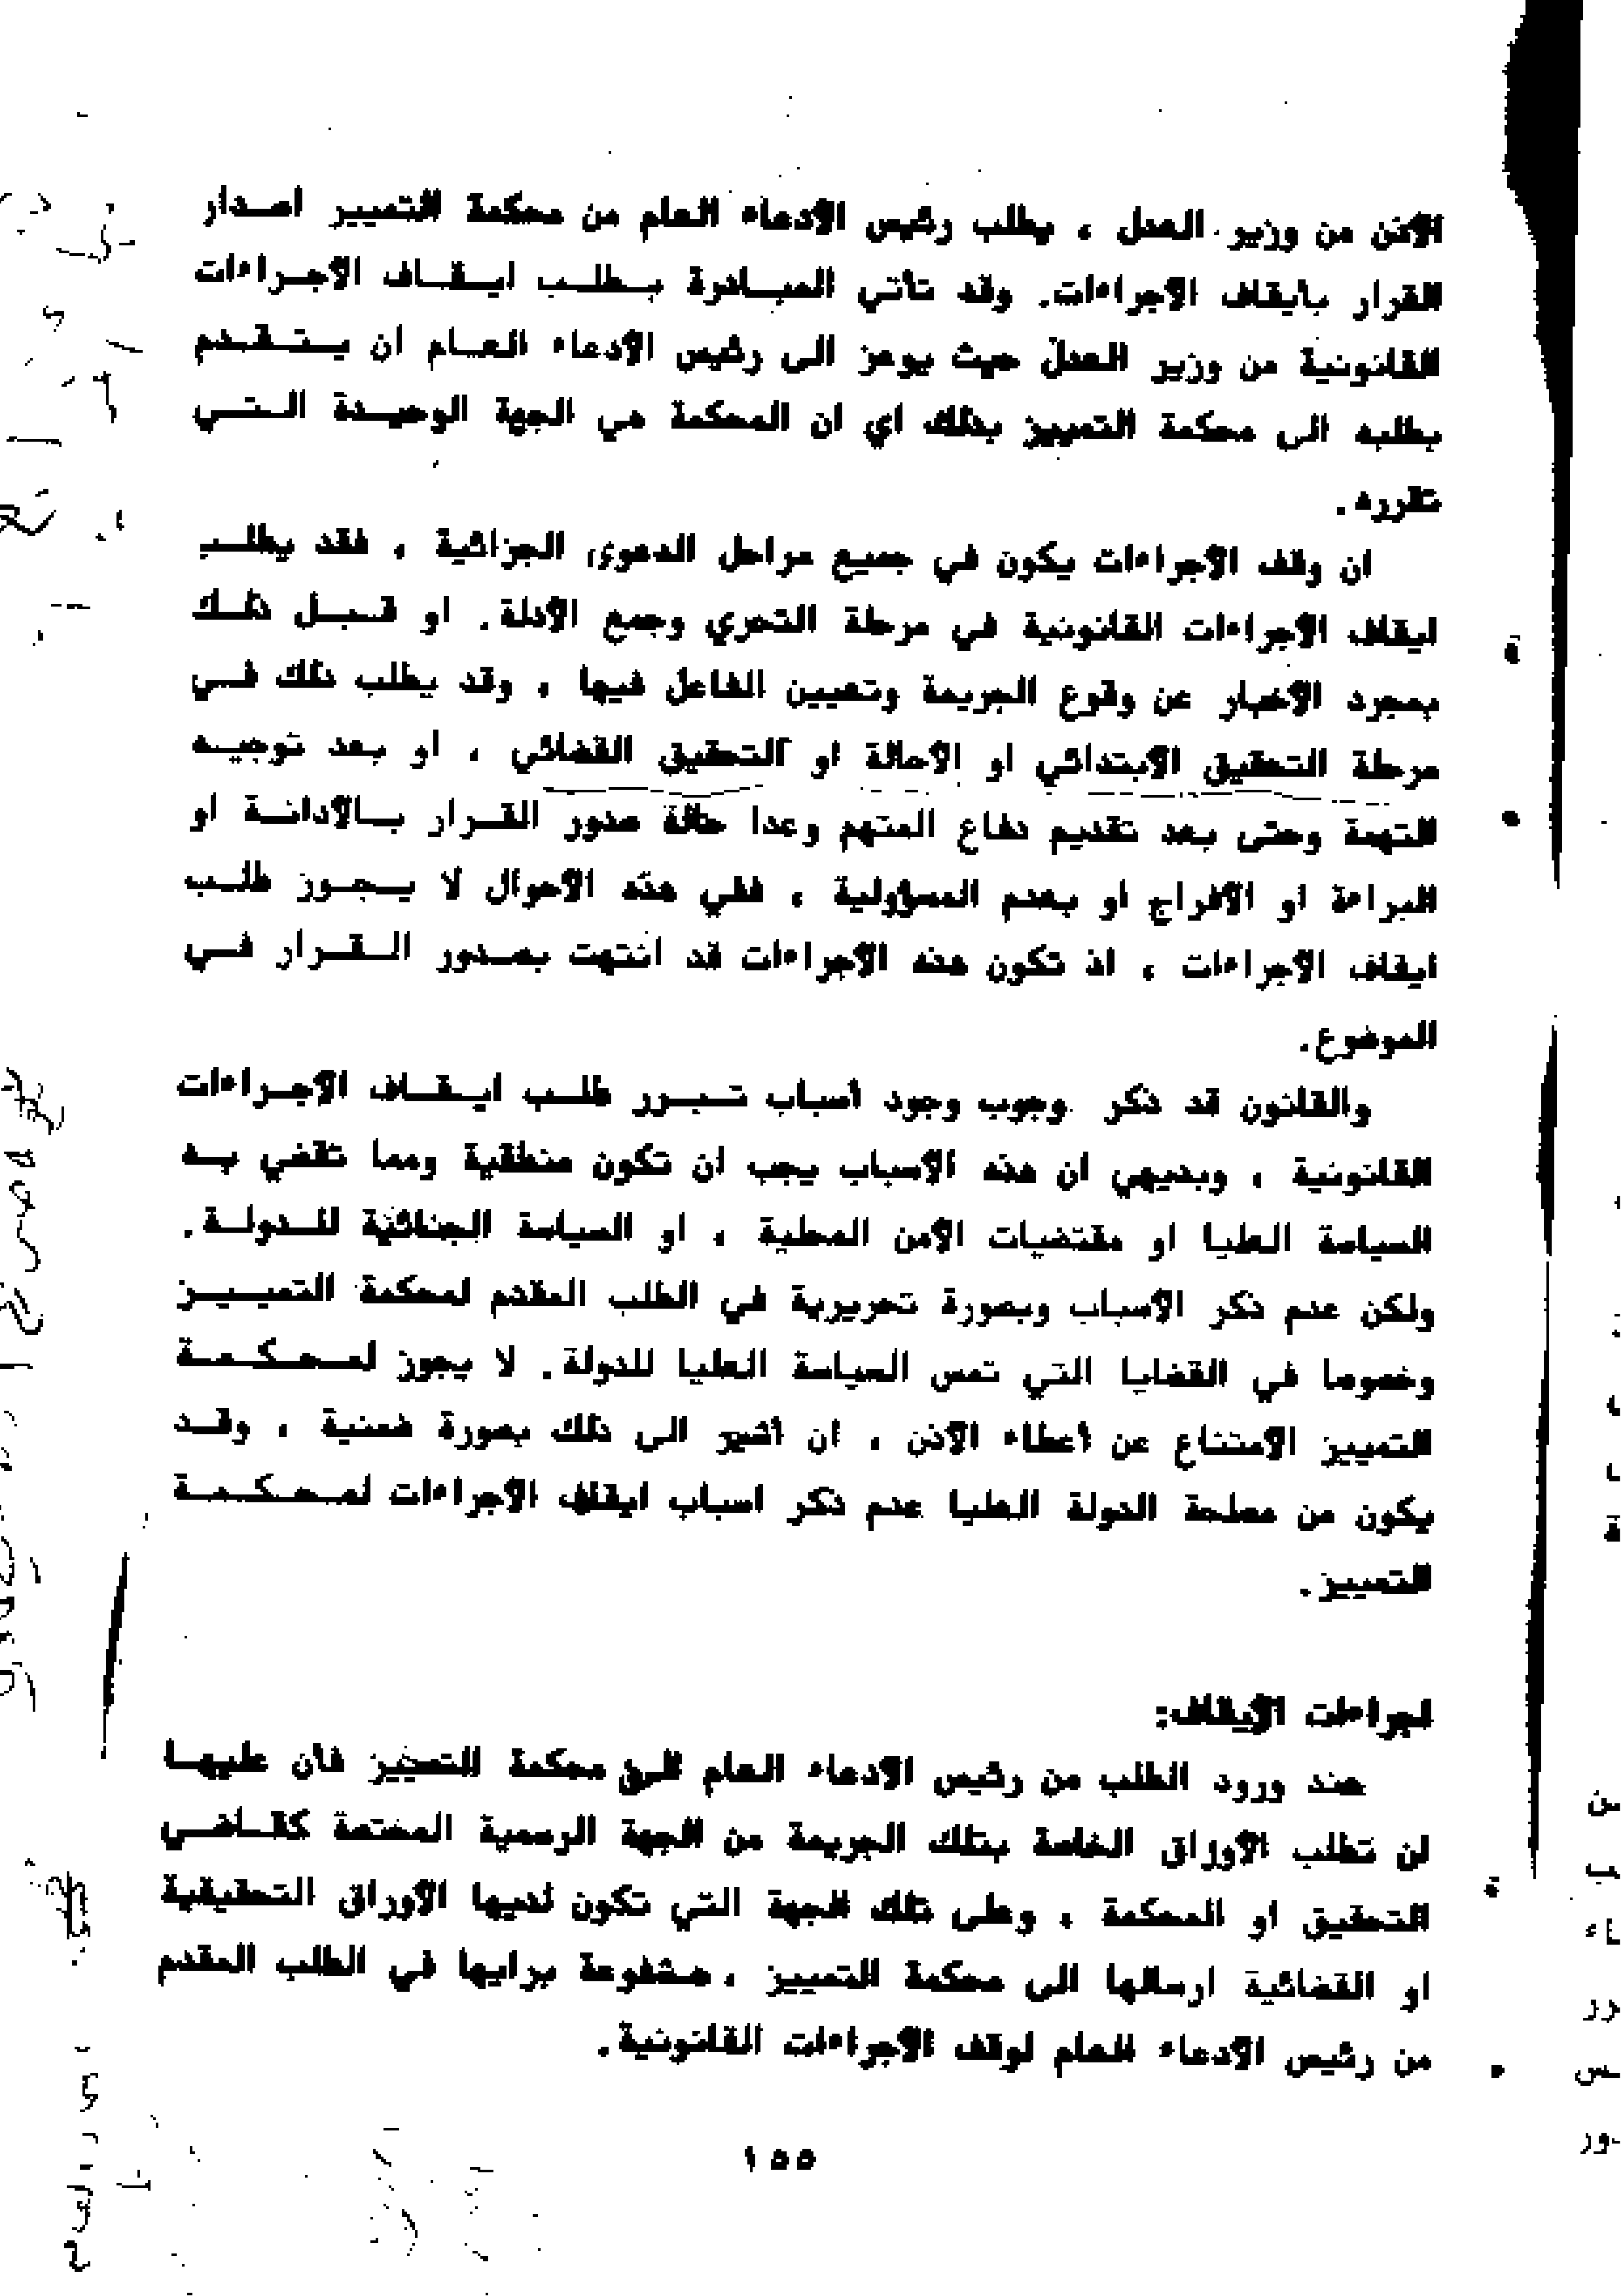 الاذن من وزير العدل ، يطلب رئيس الادعاء العام من محكمة التمييز اصدار
القرار بأيقاف الاجراءات. وقد تأتي المبادرة بطلب ايقاف الاجراءات
القانونية من وزير العدل حيث يوعز الى رئيس الادعاء العام ان يتقدم
بطلبه الى محكمة التمييز بذلك اي ان المحكمة هي الجهة الوحيدة التي
تقرره.
ان وقف الاجراءات يكون في جميع مراحل الدعوى الجزائية ، فقد يطلب
ايقاف الاجراءات القانونية في مرحلة التحري وجمع الادلة. او قبل ذلك
بمجرد الاخبار عن وقوع الجريمة وتعيين الفاعل فيها ، وقد يطلب ذلك في
مرحلة التحقيق الابتدائي او الاحالة او التحقيق القضائي ، او بعد توجيه
التهمة وحتى بعد تقديم دفاع المتهم وعدا حالة صدور القرار بالادانة او
البراءة او الافراج أو بعدم المسؤولية ، ففي هذه الاحوال لا يجوز طلب
ايقاف الاجراءات ، اذ تكون هذه الاجراءات قد انتهت بصدور القرار في
الموضوع.
والقانون قد ذكر وجوب وجود أسباب تبرر طلب ايقاف الاجراءات
القانونية ، وبديهي ان هذه الاسباب يجب ان تكون منطقية ومما تقضي به
السياسة العليا او مقتضيات الأمن المحلية ، او السياسة الجنائية للدولة.
ولكن عدم ذكر الأسباب وبصورة تحريرية في الطلب المقدم لمحكمة التمييز
وخصوصا في القضايا التي تمس السياسة العليا للدولة. لا يجوز لمحكمة
التمييز الامتناع عن أعطاء الاذن ، ان أشير الى ذلك بصورة ضمنية ، وقد
يكون من مصلحة الدولة العليا عدم ذكر اسباب ايقاف الاجراءات لمحكمة
التمييز.
اجراءات الأيقاف:
عند ورود الطلب من رئيس الادعاء العام الى محكمة التمييز فأن عليها
ان تطلب الأوراق الخاصة بتلك الجريمة من الجهة الرسمية المختصة كقاضي
التحقيق او المحكمة ، وعلى تلك الجهة التي تكون لديها الأوراق التحقيقية
او القضائية ارسالها الى محكمة التمييز ، مشفوعة برايها في الطلب المقدم
من رئيس الادعاء العام لوقف الاجراءات القانونية.
١٥٥